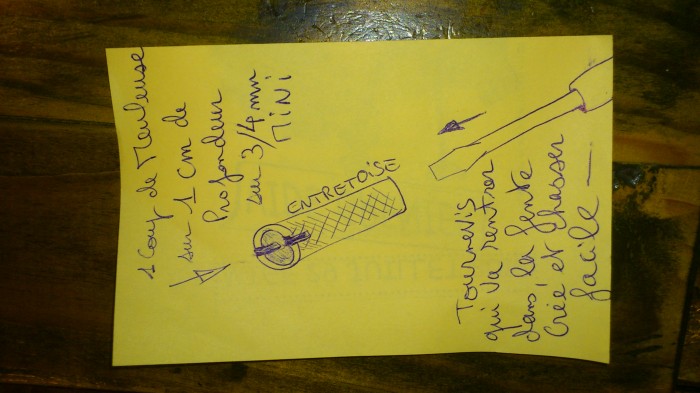 1 Coup de Meuleuse
sur 1 cm de
Profondeur
sur 3/4 mm
MINI
ENTRETOISE
Tournevis
qui va rentrer
dans la fente
Créé et chasser
facile —